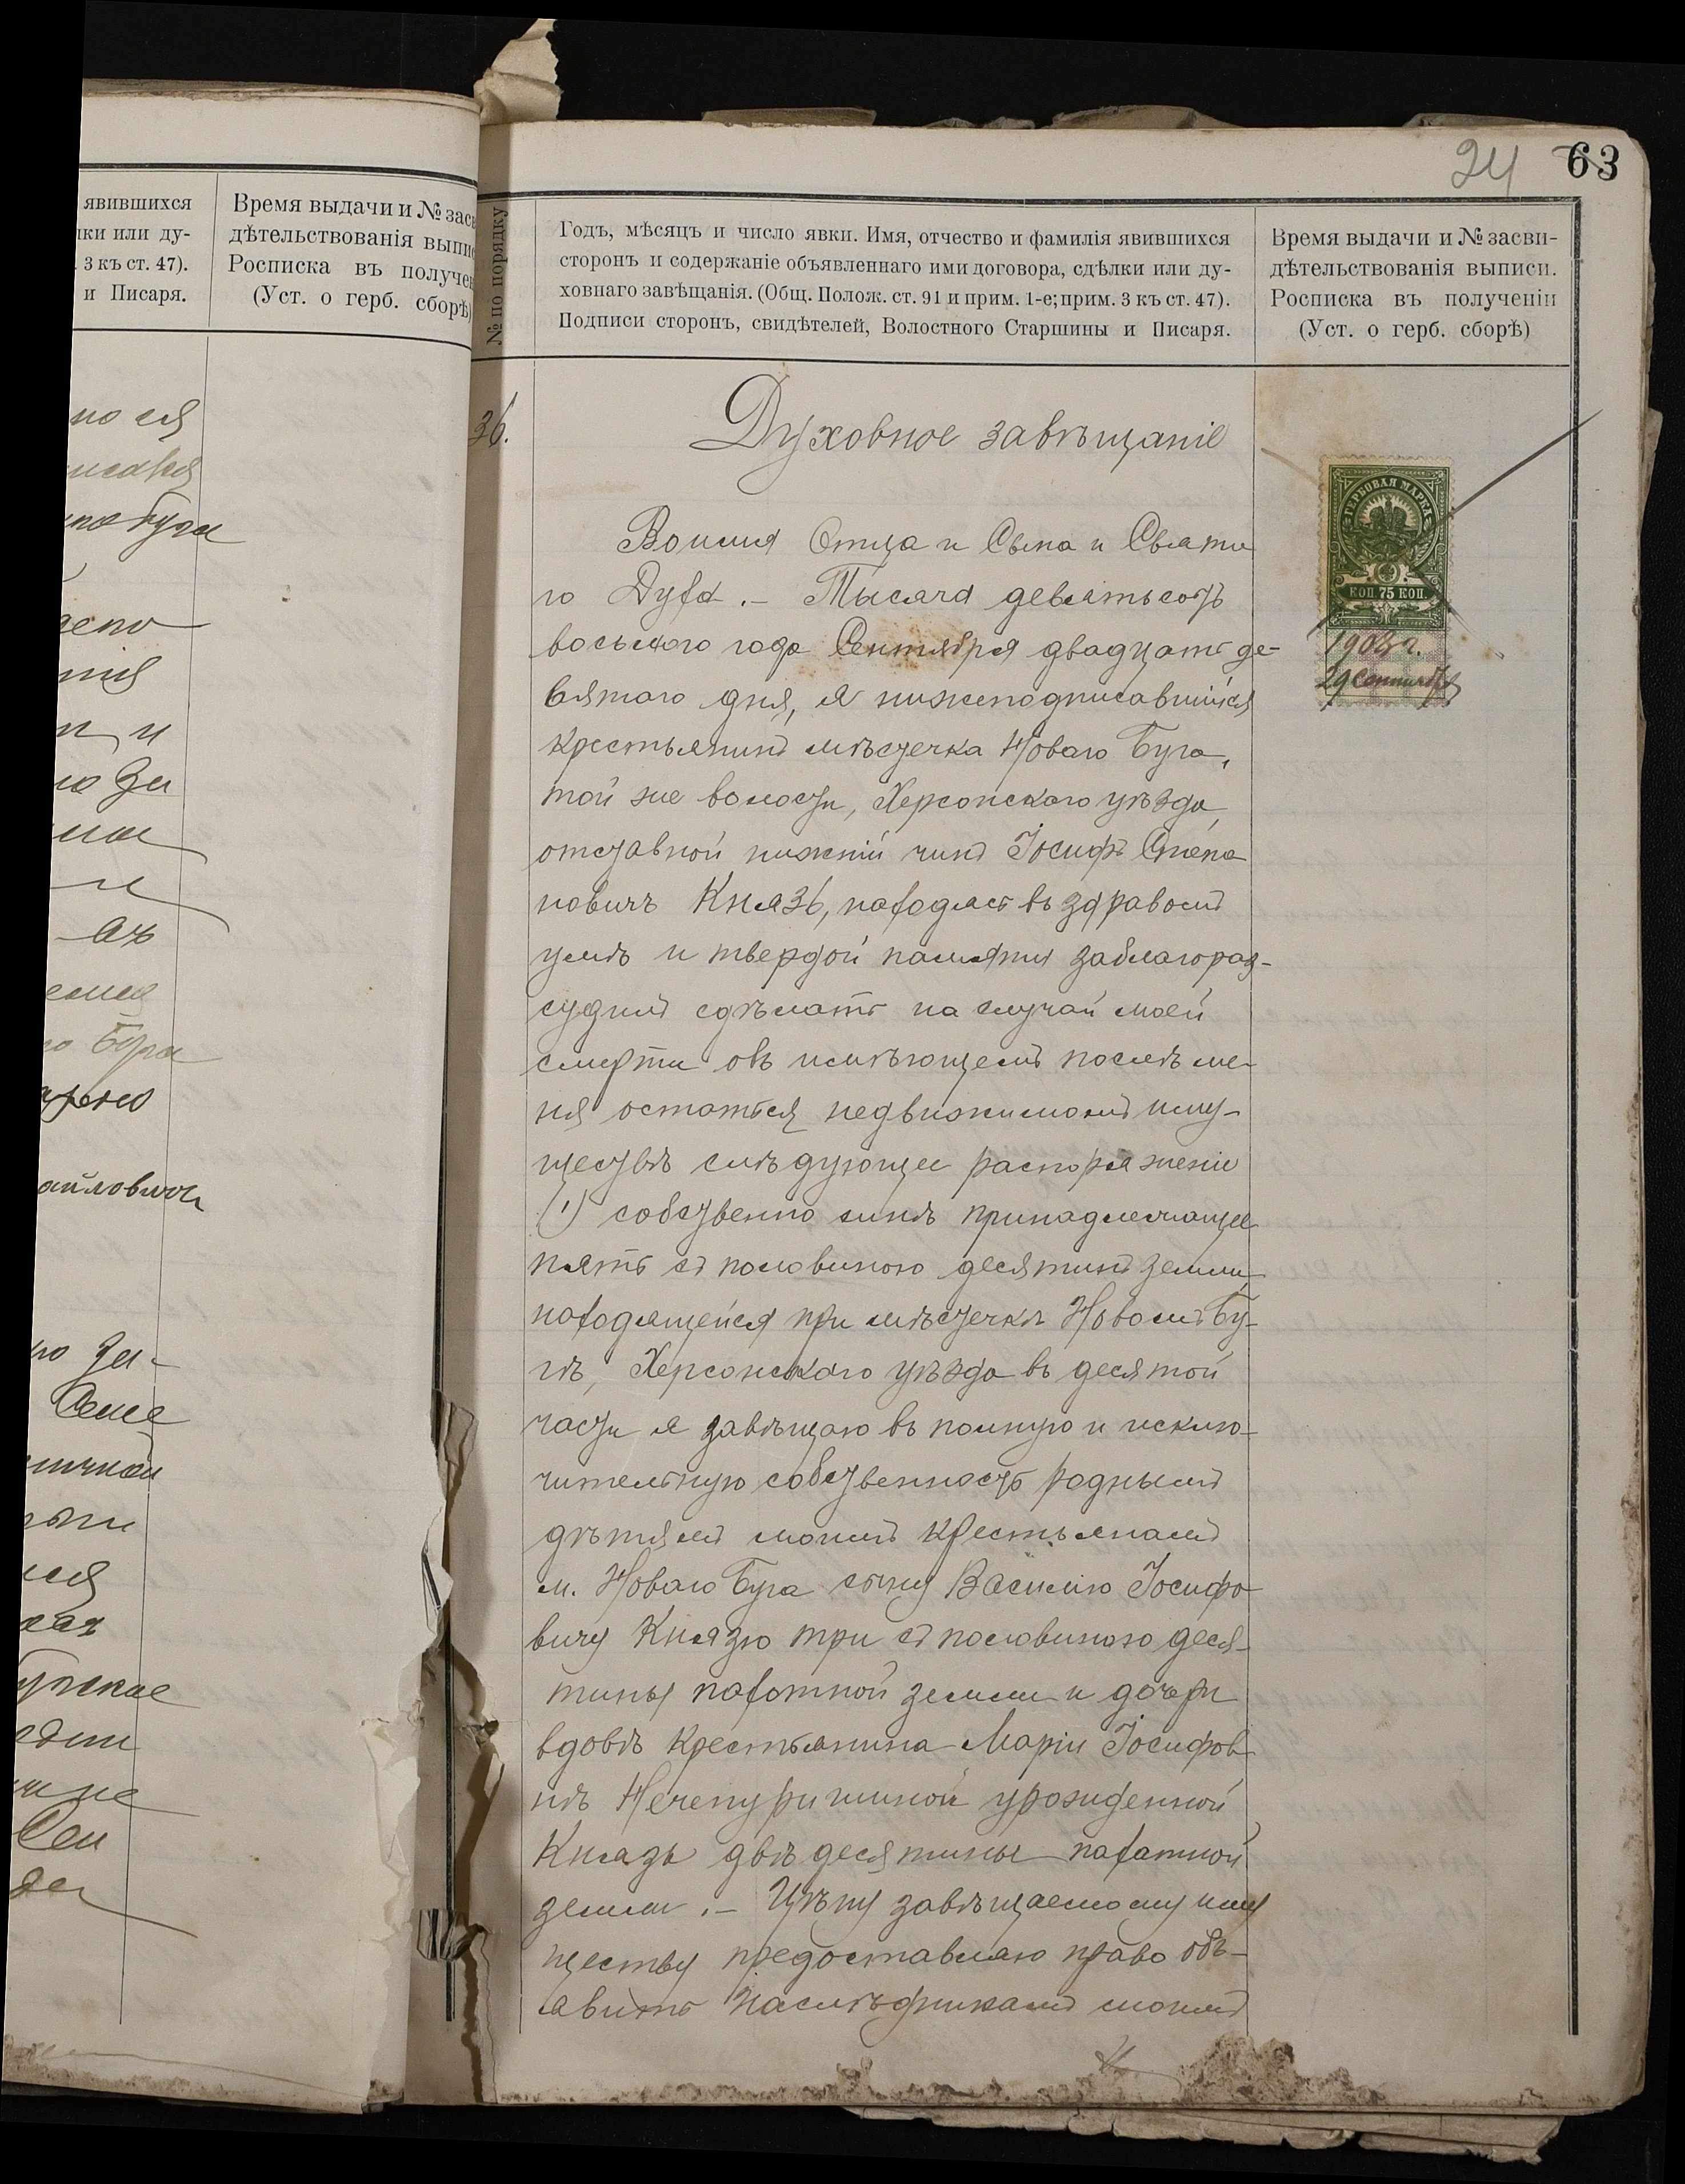 24 63
явившихся
ки или ду-
3 къ ст. 47).
и Писаря.
Время выдачи и № засви
дѣтельствованія выпис
Росписка въ получен
(Уст. о герб. сборѣ)
№ по порядку
Годъ, мѣсяцъ и число явки. Имя, отчество и фамилія явившихся
сторонъ и содержаніе объявленнаго ими договора, сдѣлки или ду-
ховнаго завѣщанія. (Общ. Полож. ст. 91 и прим. 1-е; прим. 3 къ ст. 47).
Подписи сторонъ, свидѣтелей, Волостного Старшины и Писаря.
Время выдачи и № засви-
дѣтельствованія выписи.
Росписка въ полученіи
(Уст. о герб. сборѣ)
36.
Духовное завѣщаніе
Во имя Отца и Сына и Свята
го Духа. – Тысяча девятьсотъ
восьмого года Сентября двадцать де-
вятаго дня, я нижеподписавшійся
крестьянинъ мѣстечка Новаго Буга,
той же волости, Херсонскаго уѣзда,
отставной нижній чинъ Іосифъ Степа
новичъ Князь, находясь въ здравомъ
умѣ и твердой памяти заблагораз-
судилъ сдѣлать на случай моей
смерти объ имѣющемъ послѣ ме-
ня остаться недвижимомъ иму-
ществѣ слѣдующее распоряженіе
1) собственно мнѣ принадлежащее
пять съ половиною десятинъ земли,
находящейся при мѣстечкѣ Новомъ Бу-
гѣ, Херсонскаго уѣзда въ десятой
части я завѣщаю въ полную и исклю-
чительную собственность роднымъ
дѣтямъ моимъ крестьянамъ
м. Новаго Буга сыну Василію Іосифо
вичу Князю три съ половиною деся-
тины пахотной земли и дочери
вдовѣ крестьянина Маріи Іосифов
нѣ Нечепуришиной урожденной
Князь двѣ десятины пахатной
земли. – Цѣну завѣщаемому иму
ществу предоставляю право объ-
явить наслѣдникамъ моимъ
ГЕРБОВАЯ МАРКА
КОП. 75 КОП.
1908 г.
29 Сентября